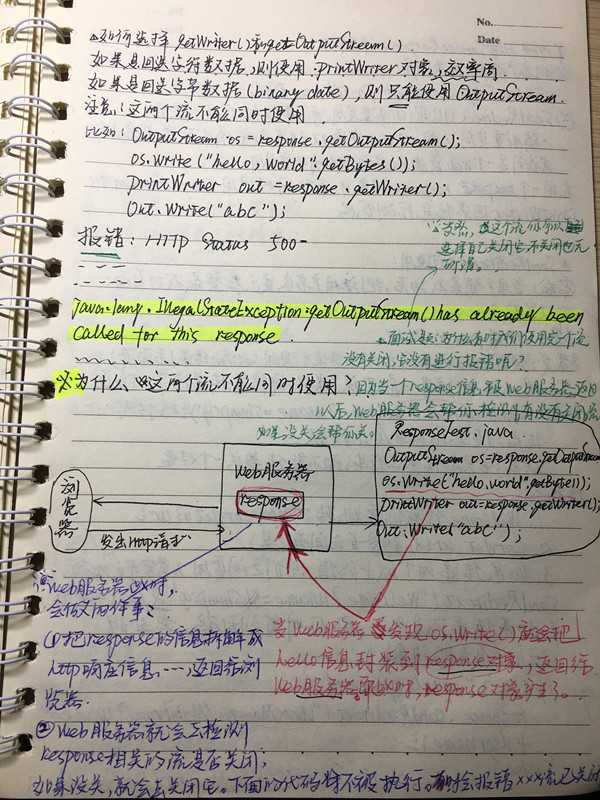 No.
Date
△如何选择 getWriter()和getOutputStream()
如果是回送字符数据,则使用 printWriter 对象,效率高
如果是回送字节数据(binary date),则只能使用 OutputStream
注意:这两个流不能同时使用
比如: OutputStream os = response.getOutputStream();
os.write("hello, world".getBytes());
printWriter out = response.getWriter();
Out.write("abc");
报错: HTTP Status 500-
当然,这个流你可以
选择自己关闭它,不关闭也无
所谓。
java.lang.IllegalStateException:getOutputStream() has already been
called for this response
面试题:为什么有时我们使用完个流
没有关闭,它没有进行报错呢?
※为什么 这两个流不能同时使用?
因为当一个response信息被web服务器返回
以后,Web服务器会帮你检测有没有关闭流
如果没关会帮你关。
浏览器
发出http请求
Web服务器
response
ResponseTest.java
OutputStream os=response.getOutputStream
os.Write("hello,world".getByte());
printWriter out=response.getWriter();
Out.Write("abc");
web服务器 此时,
会做两件事:
①把response的信息拆解成
http响应信息……,返回给浏
览器
②Web服务器就会去检测
response相关的流是否关闭;
如果没关,就会去关闭它。下面的代码将不被执行。同时会报错×××流已关闭
当Web服务器 发现 os.write()就会把
hello信息封装到response对象,返回给
Web服务器。 此时,response对象